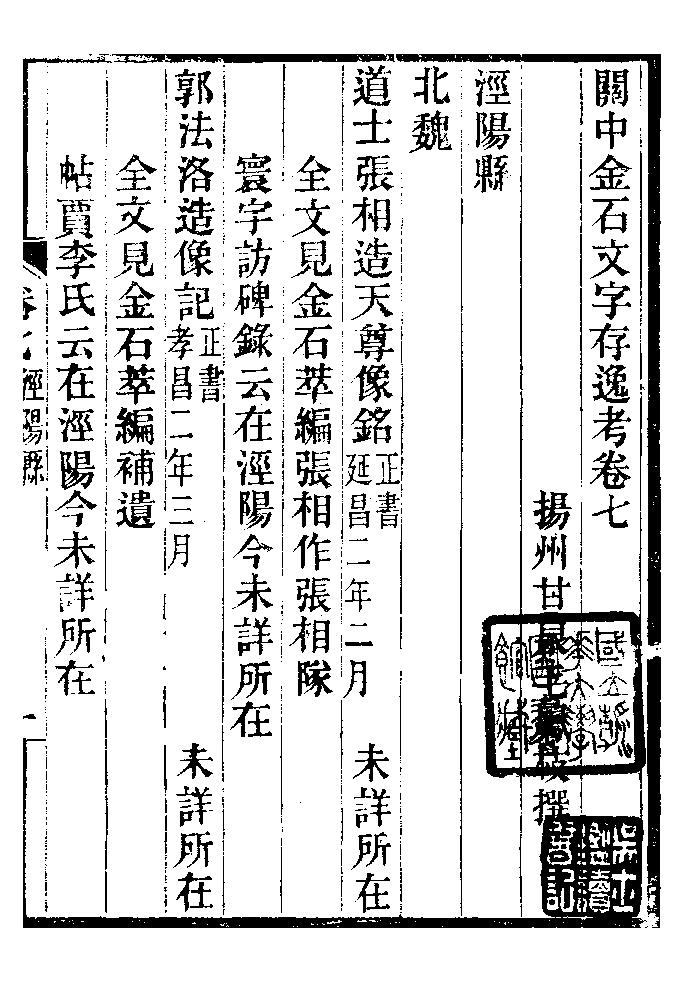 關中金石文字存逸考卷七
揚州甘泉毛鳳枝撰
涇陽縣
北魏
道士張相造天尊像銘 正書 延昌二年二月 未詳所在
全文見金石萃編張相作張相隊
寰宇訪碑錄云在涇陽今未詳所在
郭法洛造像記 正書 孝昌二年三月 未詳所在
全文見金石萃編補遺
帖賈李氏云在涇陽今未詳所在
卷七 涇陽縣 一
吳士鑑讀書記